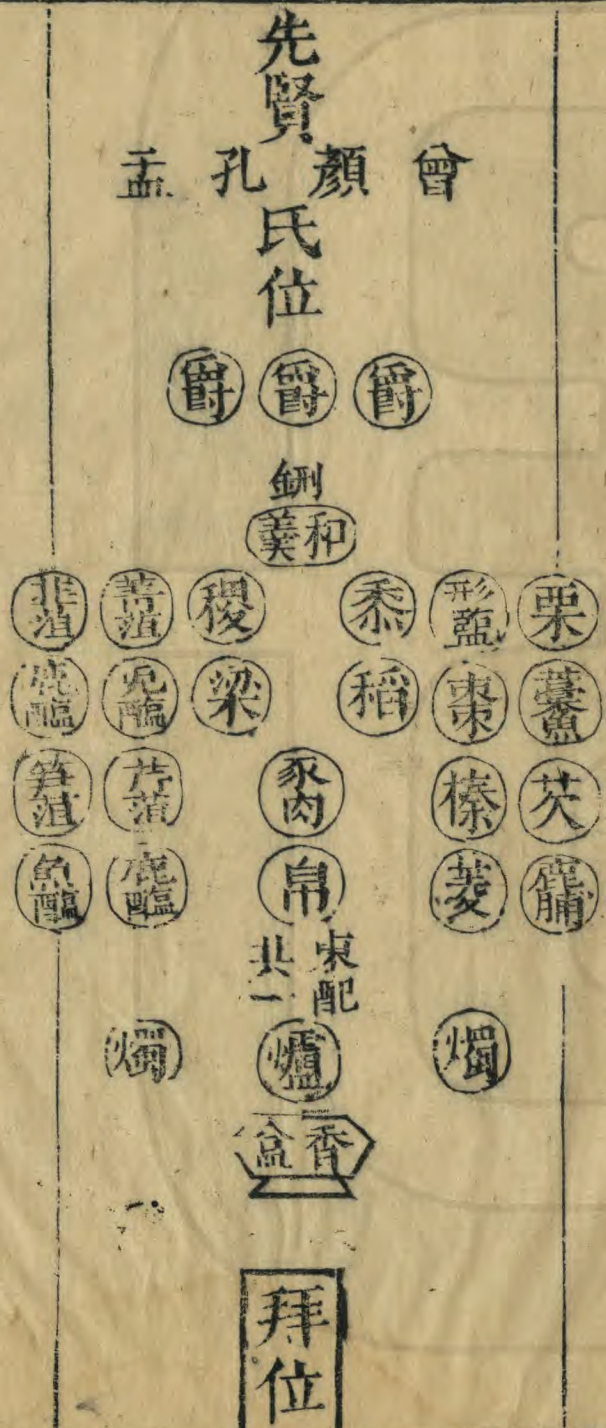 先賢
曾 顏 孔 孟
氏位
爵 爵 爵
鉶
和羹
栗 形鹽 黍 稷 菁菹 韭菹
藁魚 棗 稻 梁 兔醢 醢
芡 榛 豕肉 芹菹 筍菹
鹿脯 菱 帛 鹿醢 魚醢
東配
共一
燭 爐 燭
香盒
拜位